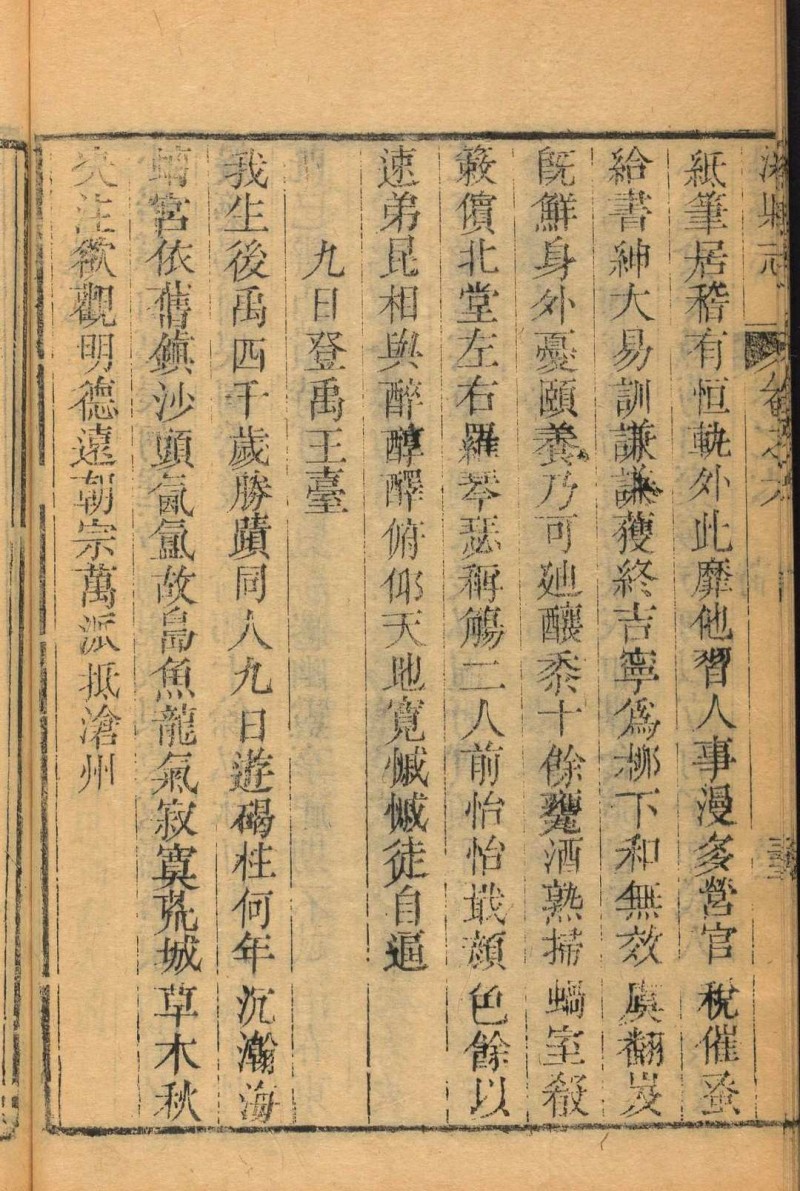 縣志
卷之六
紙筆居稽有恒軌外此靡他習人事漫多營官稅催蚤
給書紳大易訓謙謙獲終吉寧為柳下和無效虞翻岌
既鮮身外憂頤養乃可廸釀黍十餘甕酒熟掃蝸室殽
簌儐北堂左右羅琴瑟稱觴二人前怡怡戢顔色餘以
速弟昆相與醉醇醳俯仰天地寬慽慽徒自逼
九日登禹王臺
我生後禹四千歲勝蹟同人九日遊碣柱何年沉瀚海
宮依舊鎮沙頭氤氳故島魚龍氣寂寞荒城草木秋
注欲觀明德遠朝宗萬派抵滄州